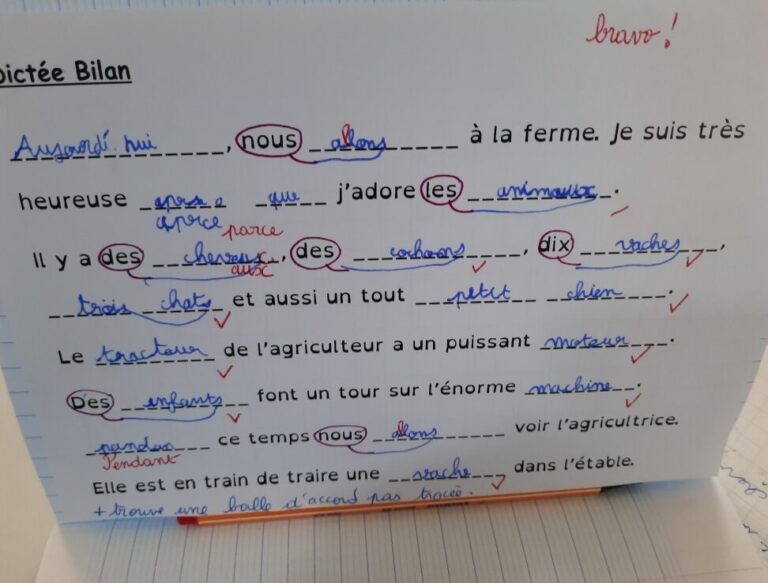 bravo!
Dictée Bilan
Aujourdi hui, nous allons à la ferme. Je suis très
heureuse aprse que j'adore les animaux.
aprce parce
Il y a des chevaux, des cochons, dix vaches,
aux
trois chats et aussi un tout petit chien.
Le tracteur de l'agriculteur a un puissant moteur.
Des enfants font un tour sur l'énorme machine.
pendan ce temps nous allons voir l'agricultrice.
Pendant
Elle est en train de traire une vache dans l'étable.
+ trouve une balle d'accord pas tracée.